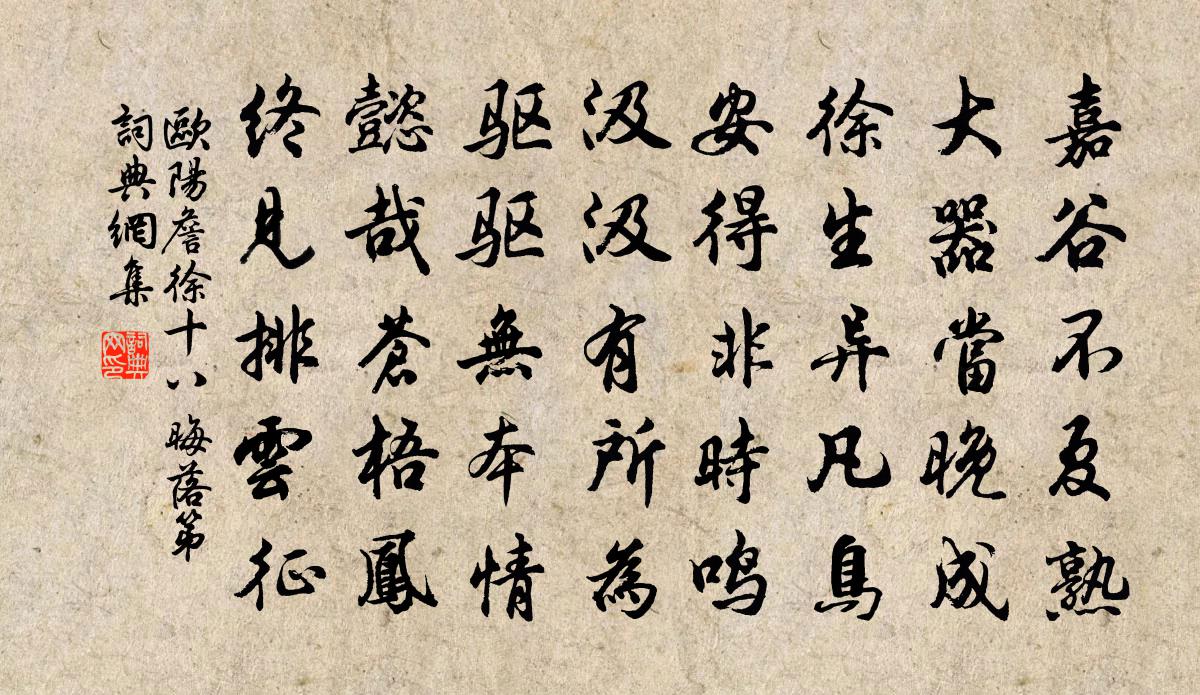 嘉谷不夏熟
大器當晚成
徐生异凡鳥
安得非時鸣
汲汲有所為
驱驱無本情
懿哉蒼梧鳳
終見排雲征
歐陽詹徐十八晦落第
詞典網集
詞典网印